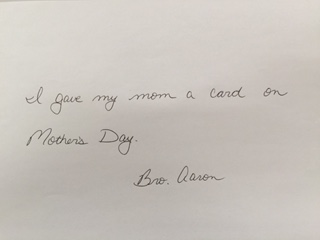 I gave my mom a card on
Mother's Day.
Bro. Aaron